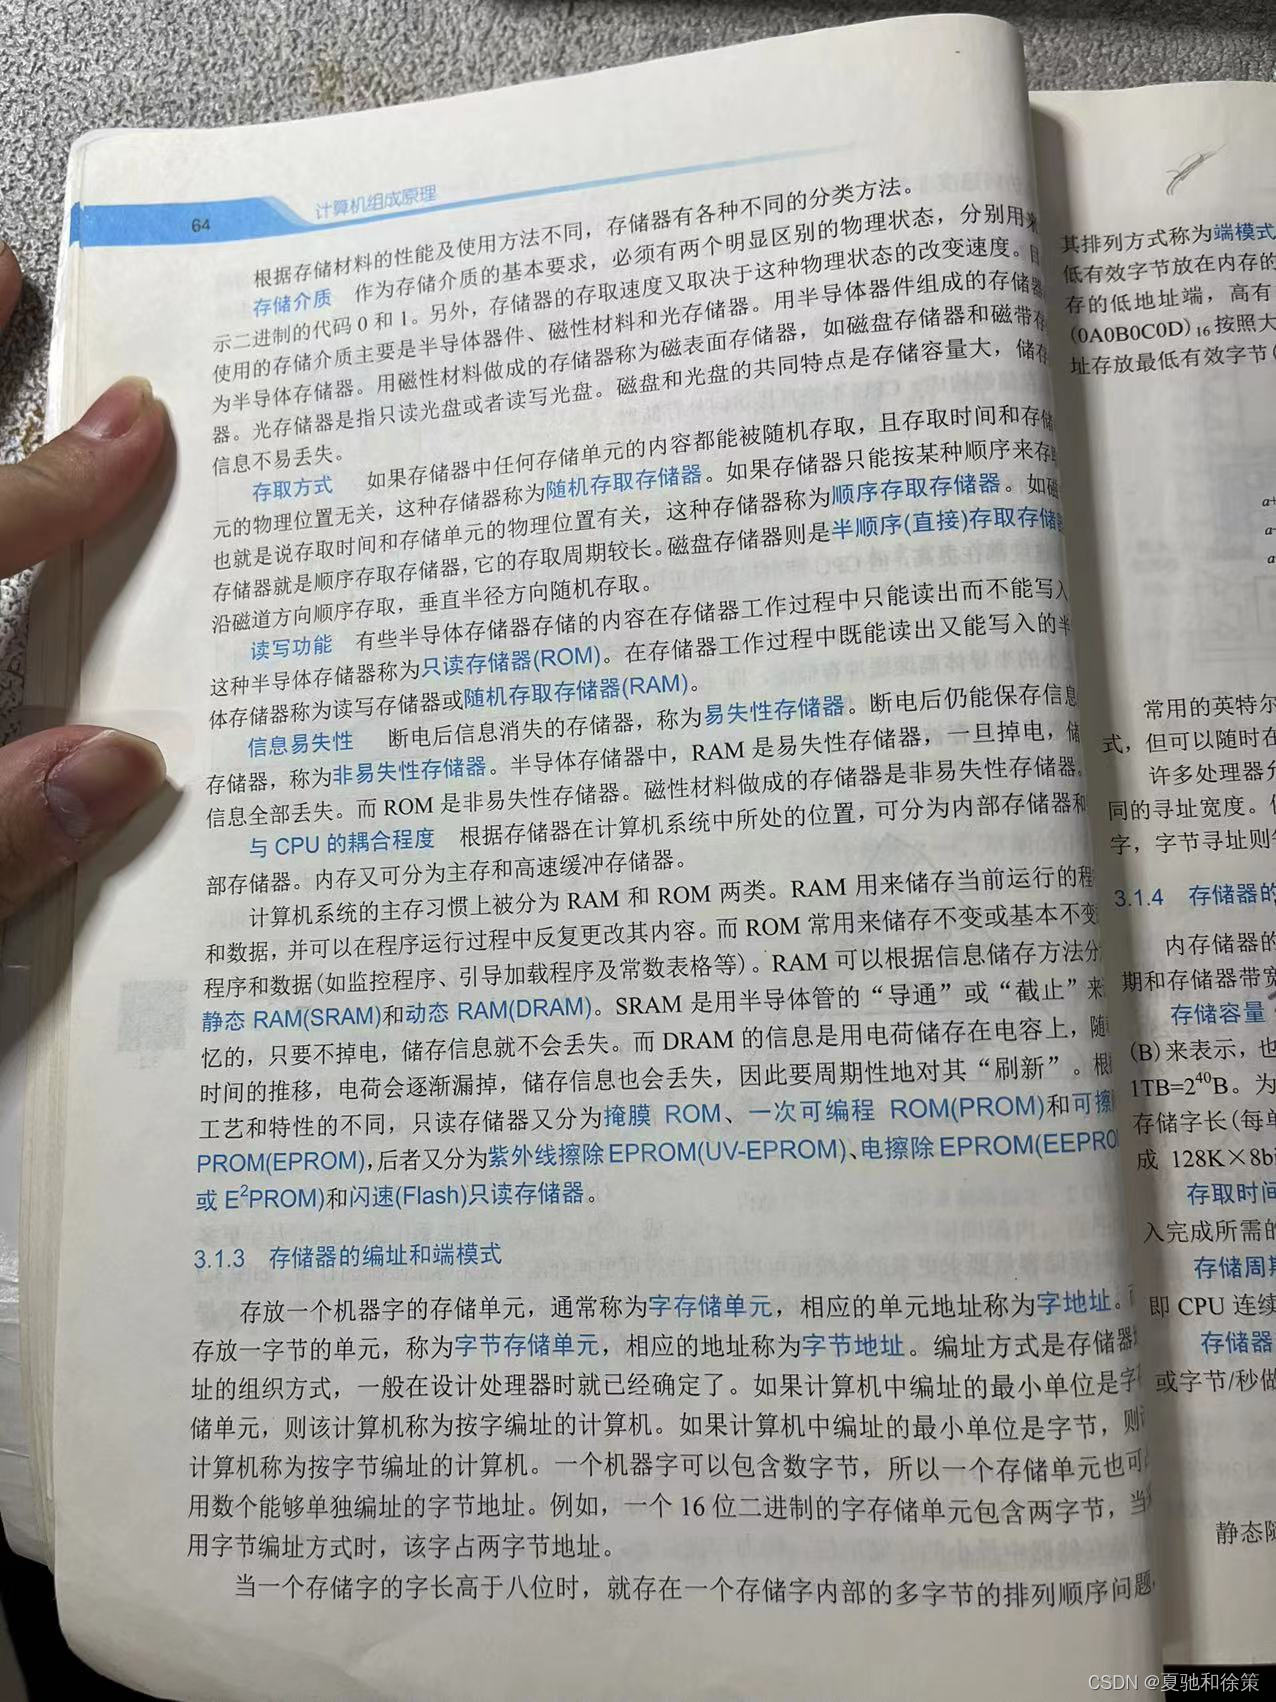 64
计算机组成原理
根据存储材料的性能及使用方法不同，存储器有各种不同的分类方法。
存储介质 作为存储介质的基本要求，必须有两个明显区别的物理状态，分别用来
示二进制的代码 0 和 1。另外，存储器的存取速度又取决于这种物理状态的改变速度。目
使用的存储介质主要是半导体器件、磁性材料和光存储器。用半导体器件组成的存储器
为半导体存储器。用磁性材料做成的存储器称为磁表面存储器，如磁盘存储器和磁带存
器。光存储器是指只读光盘或者读写光盘。磁盘和光盘的共同特点是存储容量大，储存
信息不易丢失。
存取方式 如果存储器中任何存储单元的内容都能被随机存取，且存取时间和存储
元的物理位置无关，这种存储器称为随机存取存储器。如果存储器只能按某种顺序来存
也就是说存取时间和存储单元的物理位置有关，这种存储器称为顺序存取存储器。如磁
存储器就是顺序存取存储器，它的存取周期较长。磁盘存储器则是半顺序(直接)存取存储
沿磁道方向顺序存取，垂直半径方向随机存取。
读写功能 有些半导体存储器存储的内容在存储器工作过程中只能读出而不能写入
这种半导体存储器称为只读存储器(ROM)。在存储器工作过程中既能读出又能写入的半
体存储器称为读写存储器或随机存取存储器(RAM)。
信息易失性 断电后信息消失的存储器，称为易失性存储器。断电后仍能保存信息
存储器，称为非易失性存储器。半导体存储器中，RAM 是易失性存储器，一旦掉电，储
信息全部丢失。而 ROM 是非易失性存储器。磁性材料做成的存储器是非易失性存储器。
与 CPU 的耦合程度 根据存储器在计算机系统中所处的位置，可分为内部存储器和
部存储器。内存又可分为主存和高速缓冲存储器。
计算机系统的主存习惯上被分为 RAM 和 ROM 两类。RAM 用来储存当前运行的程
和数据，并可以在程序运行过程中反复更改其内容。而 ROM 常用来储存不变或基本不变
程序和数据(如监控程序、引导加载程序及常数表格等)。RAM 可以根据信息储存方法分
静态 RAM(SRAM)和动态 RAM(DRAM)。SRAM 是用半导体管的“导通”或“截止”来
忆的，只要不掉电，储存信息就不会丢失。而 DRAM 的信息是用电荷储存在电容上，随
时间的推移，电荷会逐渐漏掉，储存信息也会丢失，因此要周期性地对其“刷新”。根
工艺和特性的不同，只读存储器又分为掩膜 ROM、一次可编程 ROM(PROM)和可擦
PROM(EPROM)，后者又分为紫外线擦除 EPROM(UV-EPROM)、电擦除 EPROM(EEPRO
或 E²PROM)和闪速(Flash)只读存储器。
3.1.3 存储器的编址和端模式
存放一个机器字的存储单元，通常称为字存储单元，相应的单元地址称为字地址。而
存放一字节的单元，称为字节存储单元，相应的地址称为字节地址。编址方式是存储器
址的组织方式，一般在设计处理器时就已经确定了。如果计算机中编址的最小单位是字
储单元，则该计算机称为按字编址的计算机。如果计算机中编址的最小单位是字节，则
计算机称为按字节编址的计算机。一个机器字可以包含数字节，所以一个存储单元也可
用数个能够单独编址的字节地址。例如，一个 16 位二进制的字存储单元包含两字节，当
用字节编址方式时，该字占两字节地址。
当一个存储字的字长高于八位时，就存在一个存储字内部的多字节的排列顺序问题，
其排列方式称为端模式
低有效字节放在内存的
存的低地址端，高有
(0A0B0C0D)₁₆按照大
址存放最低有效字节(
常用的英特尔
式，但可以随时在
许多处理器
同的寻址宽度。
字，字节寻址则
3.1.4 存储器的
内存储器的
期和存储器带宽
存储容量
(B)来表示，也
1TB=2⁴⁰B。为
存储字长(每单
成 128K×8bi
存取时间
入完成所需的
存储周期
即 CPU 连续
存储器
或字节/秒做
静态随
CSDN @夏驰和徐策